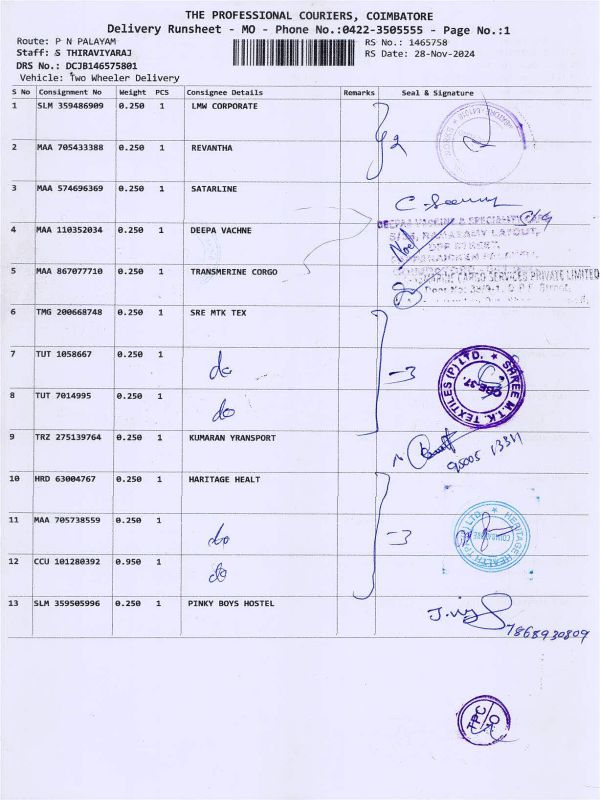 THE PROFESSIONAL COURIERS, COIMBATORE
Delivery Runsheet - MO - Phone No.:0422-3505555 - Page No.:1
Route: P N PALAYAM
RS No.: 1465758
Staff: S THIRAVIYARAJ
RS Date: 28-Nov-2024
DRS No.: DCJB146575801
Vehicle: Two Wheeler Delivery
S No Consignment No Weight PCS Consignee Details Remarks Seal & Signature
1 SLM 359486909 0.250 1 LMW CORPORATE
2
2 MAA 705433388 0.250 1 REVANTHA
3 MAA 574696369 0.250 1 SATARLINE
4 MAA 110352034 0.250 1 DEEPA VACHNE
DEEPAA VACCINE & SPECIALITY
RAMASAMY LAYOUT,
DPF STREET,
5 MAA 867077710 0.250 1 TRANSMERINE CORGO
CARGO SERVICES PRIVATE LIMITED
6 TMG 200668748 0.250 1 SRE MTK TEX
7 TUT 1058667 0.250 1 do
-3
SHREE M.T.K. TEXTILES (P) LTD.
CBE-37.
8 TUT 7014995 0.250 1 do
9 TRZ 275139764 0.250 1 KUMARAN YRANSPORT
95005 13311
10 HRD 63004767 0.250 1 HARITAGE HEALT
11 MAA 705738559 0.250 1 do
-3
HERITAGE HEALTH TPA (P) LTD.
COIMBATORE
12 CCU 101280392 0.950 1 do
13 SLM 359505996 0.250 1 PINKY BOYS HOSTEL
7868930809
TPC